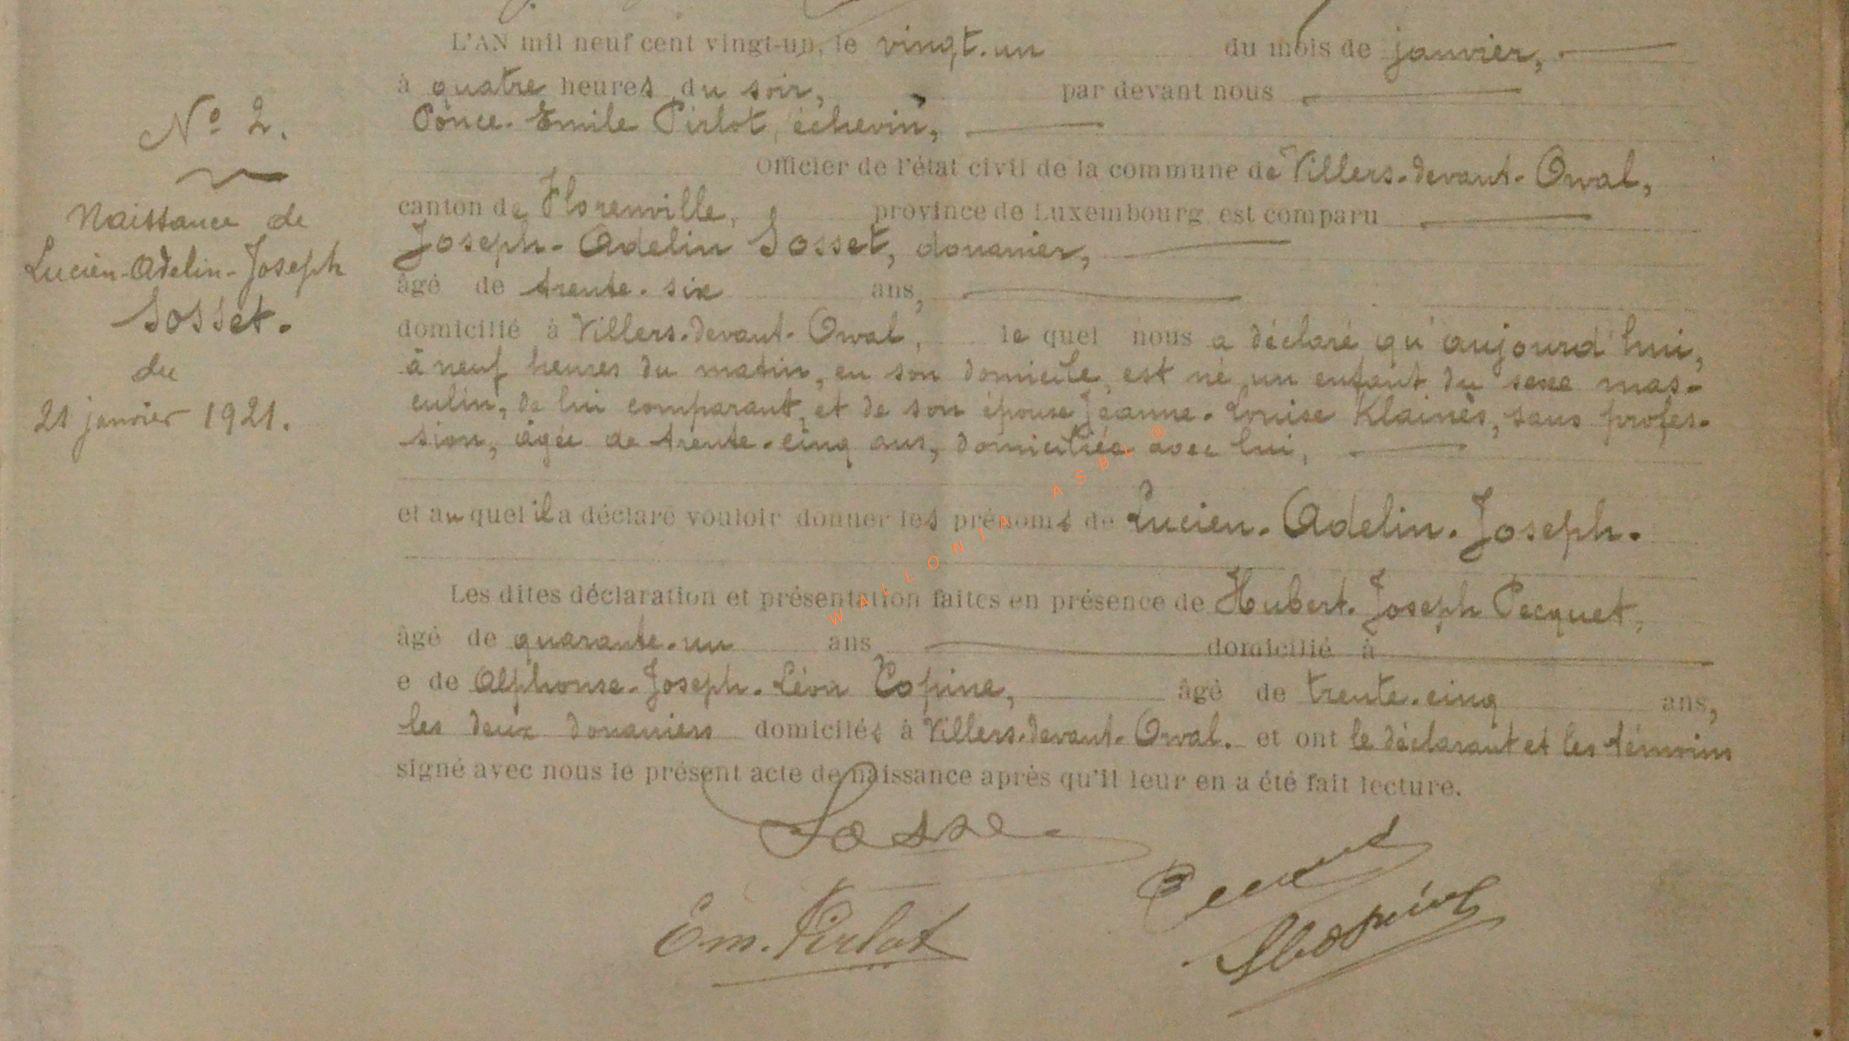 L'AN mil neuf cent vingt-un, le vingt-un du mois de janvier,
à quatre heures du soir, par devant nous
Ponce-Emile Pirlot, échevin,
Officier de l'état civil de la commune de Villers-devant-Orval,
canton de Florenville, province de Luxembourg est comparu
Joseph-Adelin Sosset, douanier,
âgé de trente-six ans,
domicilié à Villers-devant-Orval, le quel nous a déclaré qu'aujourd'hui,
à neuf heures du matin, en son domicile, est né un enfant du sexe mas-
culin, de lui comparant, et de son épouse Jeanne-Louise Klainès, sans profes-
sion, âgée de trente-cinq ans, domiciliée avec lui,
et au quel il a déclaré vouloir donner les prénoms de Lucien-Adelin-Joseph.
Les dites déclaration et présentation faites en présence de Hubert-Joseph Pecquet,
âgé de quarante-un ans domicilié à
e de Alphonse-Joseph-Léon Copine, âgé de trente-cinq ans,
les deux douaniers domiciliés à Villers-devant-Orval. et ont le déclarant et les témoins
signé avec nous le présent acte de naissance après qu'il leur en a été fait lecture.
Nº 2.
Naissance de
Lucien-Adelin-Joseph
Sosset.
du
21 janvier 1921.
Em. Pirlot
WALLONIA ASBL